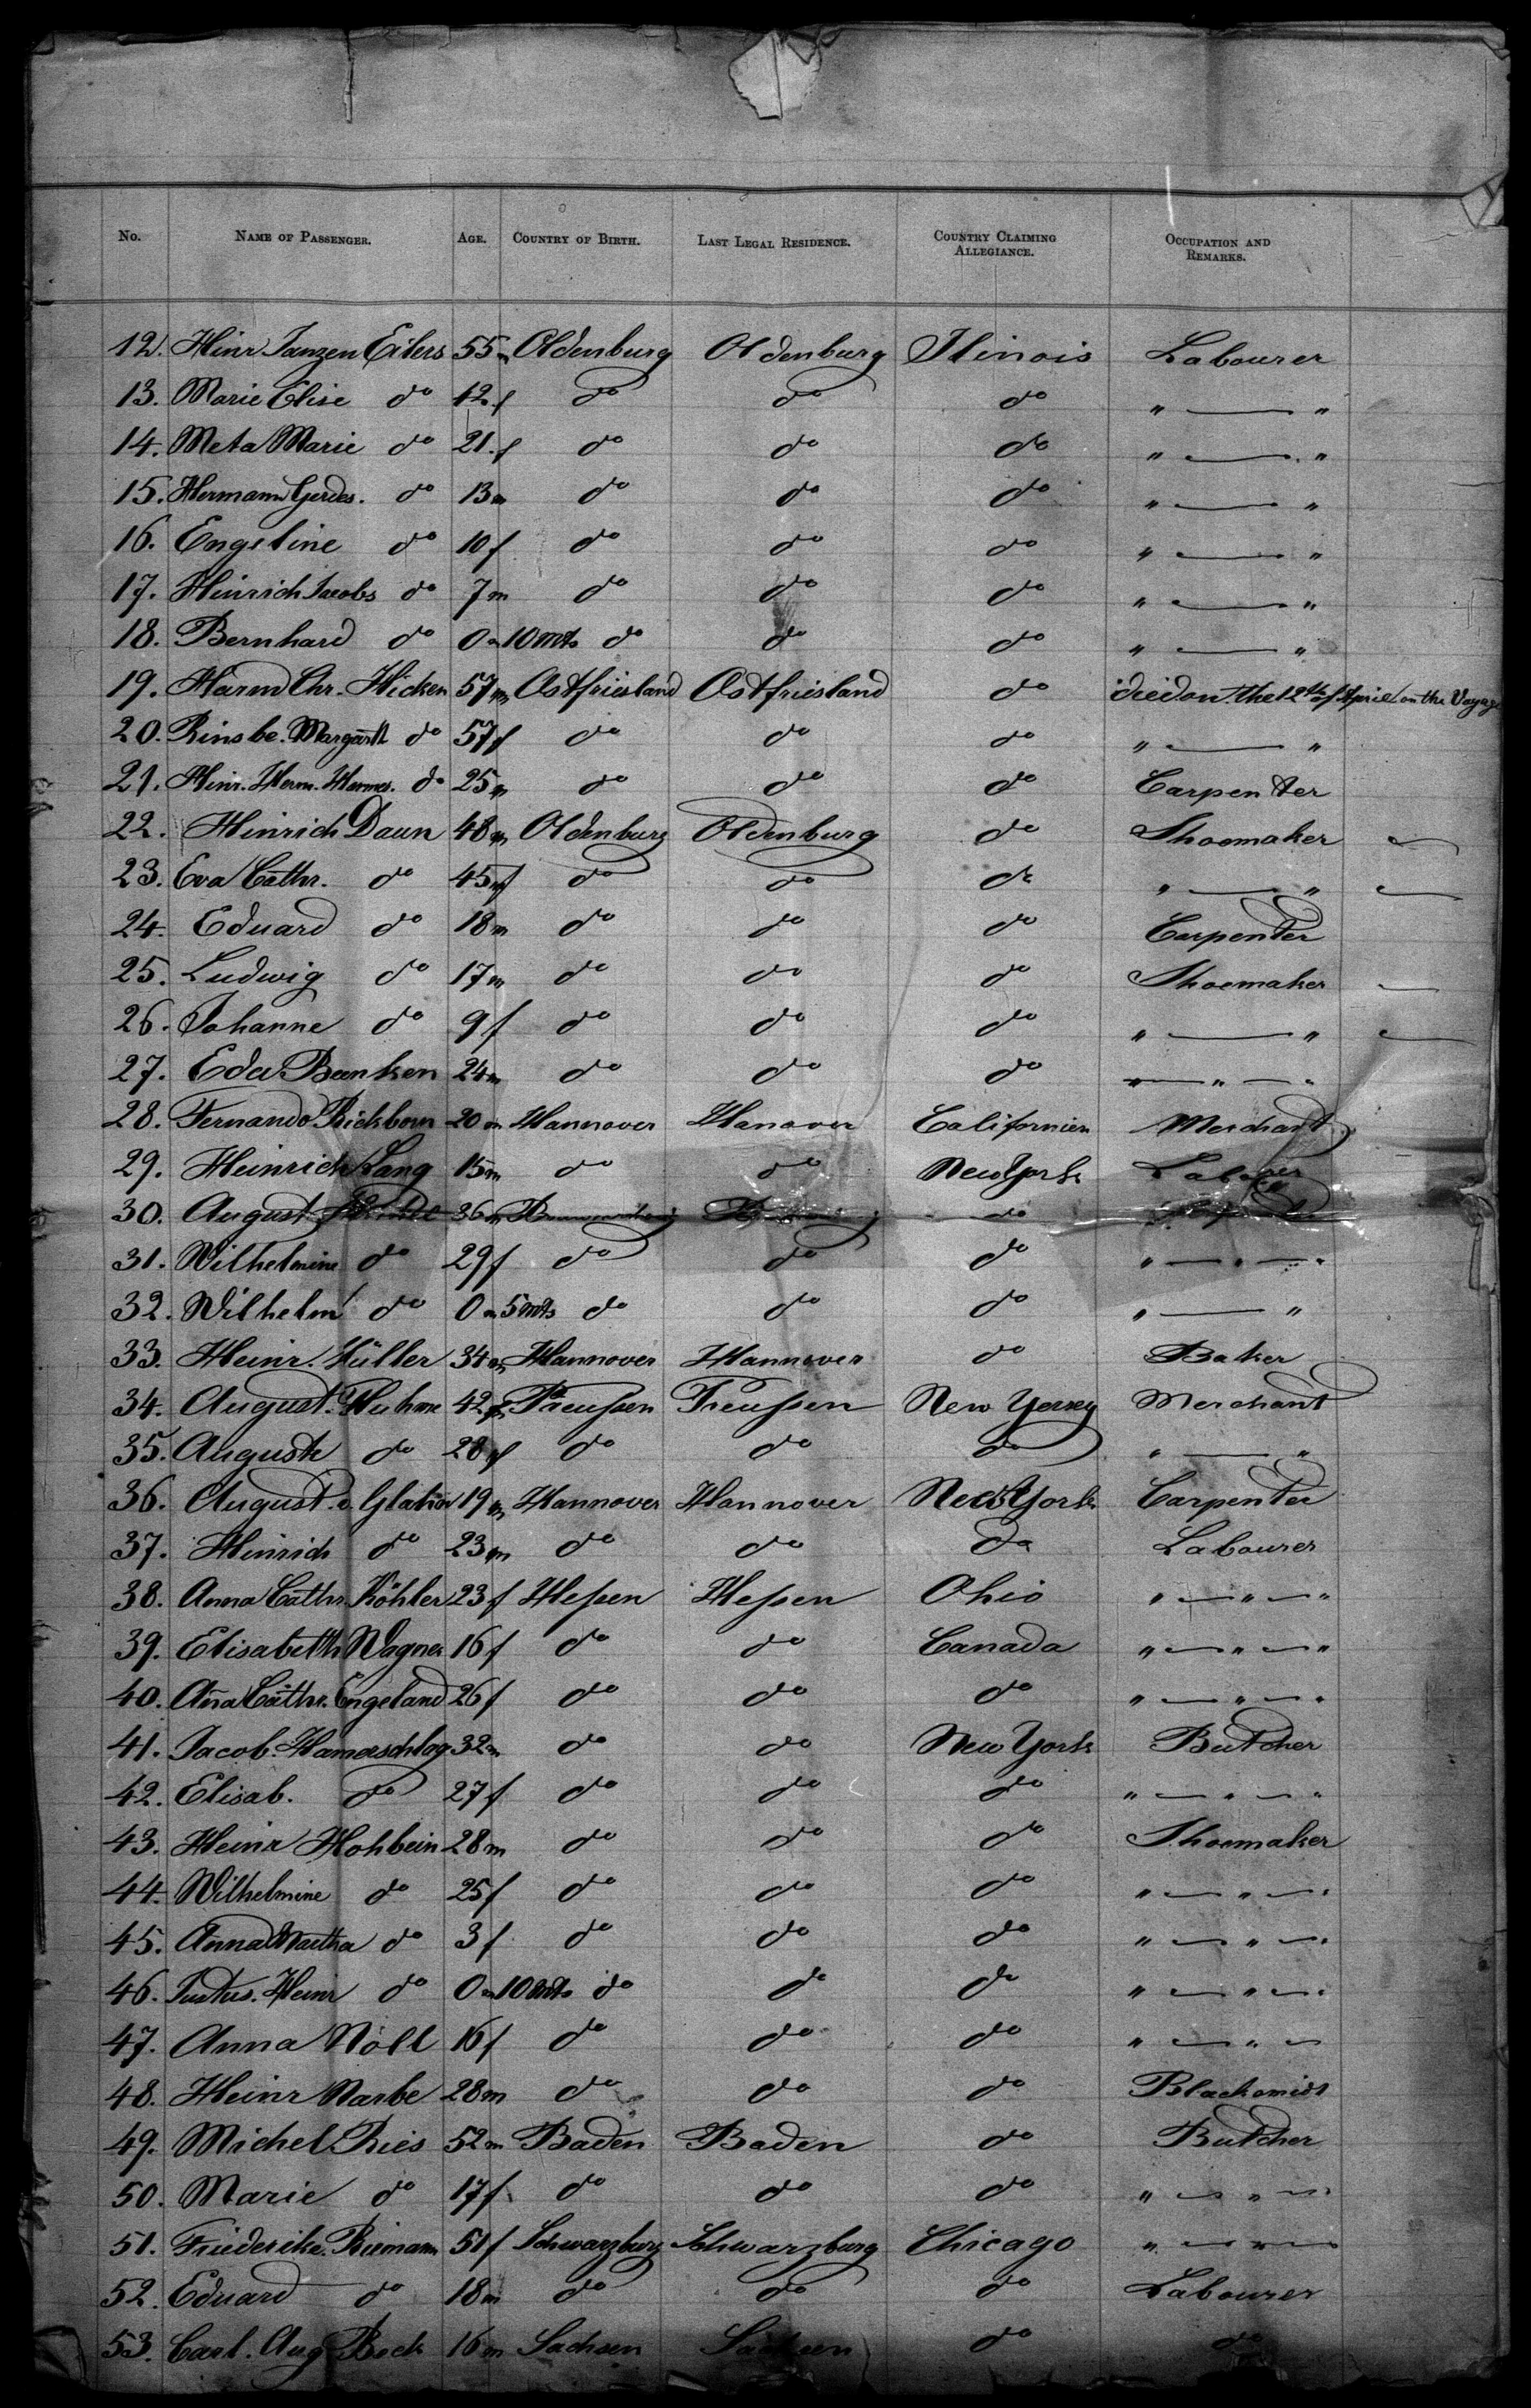 No. NAME OF PASSENGER. AGE. COUNTRY OF BIRTH. LAST LEGAL RESIDENCE. COUNTRY CLAIMING ALLEGIANCE. OCCUPATION AND REMARKS.
12. Hinr Janzen Eilers 55 m Oldenburg Oldenburg Ilinois Labourer
13. Marie Elise do 42 f do do do " — "
14. Meta Marie do 21. f do do do " — "
15. Hermann Gerdes. do 13 m do do do " — "
16. Engeline do 10 f do do do " — "
17. Hinrich Jacobs do 7 m do do do " — "
18. Bernhard do 0 m 10 mts do do do " — "
19. Harm Chr. Hicken 57 m Ostfriesland Ostfriesland do died on the 12th of April on the Voyage
20. Rinsbe. Margarth do 57 f do do do " — "
21. Hinr. Herm. Harmes. do 25 m do do do Carpenter
22. Hinrich Daun 48 m Oldenburg Oldenburg do Shoemaker
23. Eva Cathr. do 45 f do do do " — "
24. Eduard do 18 m do do do Carpenter
25. Ludwig do 17 m do do do Shoemaker
26. Johanne do 9 f do do do " — "
27. Eda Beenken 24 m do do do " — " — "
28. Fernando Rickborn 20 m Hannover Hanover Californien Merchant
29. Heinrich Lang 15 m do do New York Labourer
30. August 36 m do
31. Wilhelmine do 29 f do do do " — " — "
32. Wilhelm do 0 m 5 mts do do do " — "
33. Heinr. Hüller 34 m Hannover Hannover do Baker
34. August. Fluhme 42 m Preussen Preussen New Yersey Merchant
35. Auguste do 28 f do do do " — "
36. August. v. Glahn 19 m Hannover Hannover New York Carpenter
37. Hinrich do 23 m do do do Labourer
38. Anna Cathr. Köhler 23 f Hessen Hessen Ohio " — " — "
39. Elisabeth Wagner 16 f do do Canada " — " — "
40. Ana Cathr. Engeland 26 f do do do " — " — "
41. Jacob. Hamerschlag 32 m do do New York Butcher
42. Elisab. do 27 f do do do " — " — "
43. Heinr Hohbein 28 m do do do Shoemaker
44. Wilhelmine do 25 f do do do " — " — "
45. Anna Martha do 3 f do do do " — " — "
46. Justus. Heinr do 0 m 10 mts do do do " — " — "
47. Anna Noll 16 f do do do " — " —
48. Heinr Narbe 28 m do do do Blacksmidt
49. Michel Ries 52 m Baden Baden do Butcher
50. Marie do 17 f do do do " — " — "
51. Friederike. Riemann 51 f Schwarzburg Schwarzburg Chicago " — " —
52. Eduard do 18 m do do do Labourer
53. Carl. Aug Beck 16 m Sachsen Sachsen do do